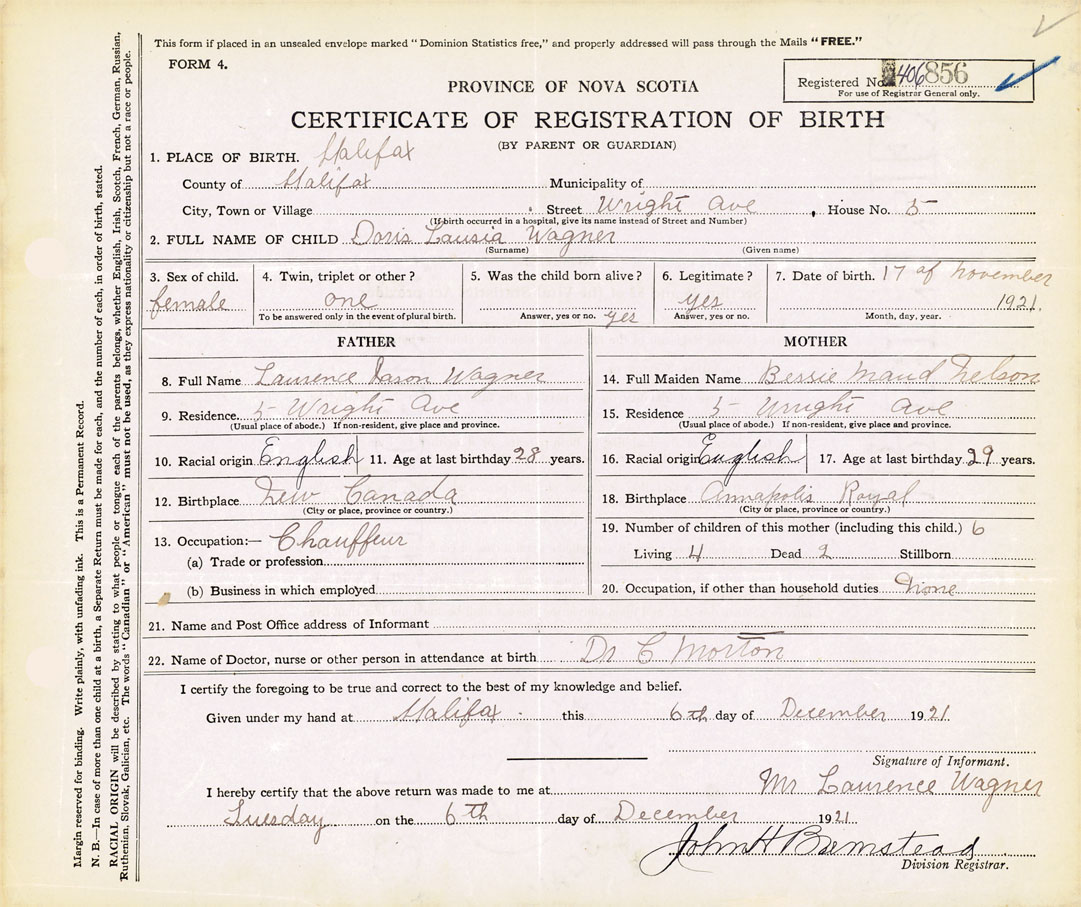 This form if placed in an unsealed envelope marked "Dominion Statistics free," and properly addressed will pass through the Mails "FREE."
FORM 4.
Registered No. 406856
For use of Registrar General only.
PROVINCE OF NOVA SCOTIA
CERTIFICATE OF REGISTRATION OF BIRTH
(BY PARENT OR GUARDIAN)
1. PLACE OF BIRTH. Halifax
County of Halifax Municipality of
City, Town or Village Street Wright Ave, House No. 5
(If birth occurred in a hospital, give its name instead of Street and Number)
2. FULL NAME OF CHILD Doris Lausia Wagner
(Surname) (Given name)
3. Sex of child. female
4. Twin, triplet or other? one
To be answered only in the event of plural birth.
5. Was the child born alive?
Answer, yes or no. yes
6. Legitimate? yes
Answer, yes or no.
7. Date of birth. 17 of November
1921.
Month, day, year.
FATHER
8. Full Name Laurence Iason Wagner
9. Residence. 5 Wright Ave
(Usual place of abode.) If non-resident, give place and province.
10. Racial origin English 11. Age at last birthday 28 years.
12. Birthplace New Canada
(City or place, province or country.)
13. Occupation:— Chauffeur
(a) Trade or profession
(b) Business in which employed
MOTHER
14. Full Maiden Name Bessie Maud Nelson
15. Residence 5 Wright Ave
(Usual place of abode.) If non-resident, give place and province.
16. Racial origin English 17. Age at last birthday 29 years.
18. Birthplace Annapolis Royal
(City or place, province or country.)
19. Number of children of this mother (including this child.) 6
Living 4 Dead 2 Stillborn
20. Occupation, if other than household duties None
21. Name and Post Office address of Informant
22. Name of Doctor, nurse or other person in attendance at birth Dr C Morton
I certify the foregoing to be true and correct to the best of my knowledge and belief.
Given under my hand at Halifax this 6th day of December 1921.
Signature of Informant.
I hereby certify that the above return was made to me at Mr Laurence Wagner
Tuesday on the 6th day of December 1921
John H Barnstead
Division Registrar.
Margin reserved for binding. Write plainly, with unfading ink. This is a Permanent Record.
N. B.—In case of more than one child at a birth, a Separate Return must be made for each, and the number of each, in order of birth, stated.
RACIAL ORIGIN will be described by stating to what people or tongue each of the parents belongs, whether English, Irish, Scotch, French, German, Russian,
Ruthenian, Slovak, Galician, etc. The words "Canadian" or "American" must not be used, as they express nationality or citizenship but not a race or people.